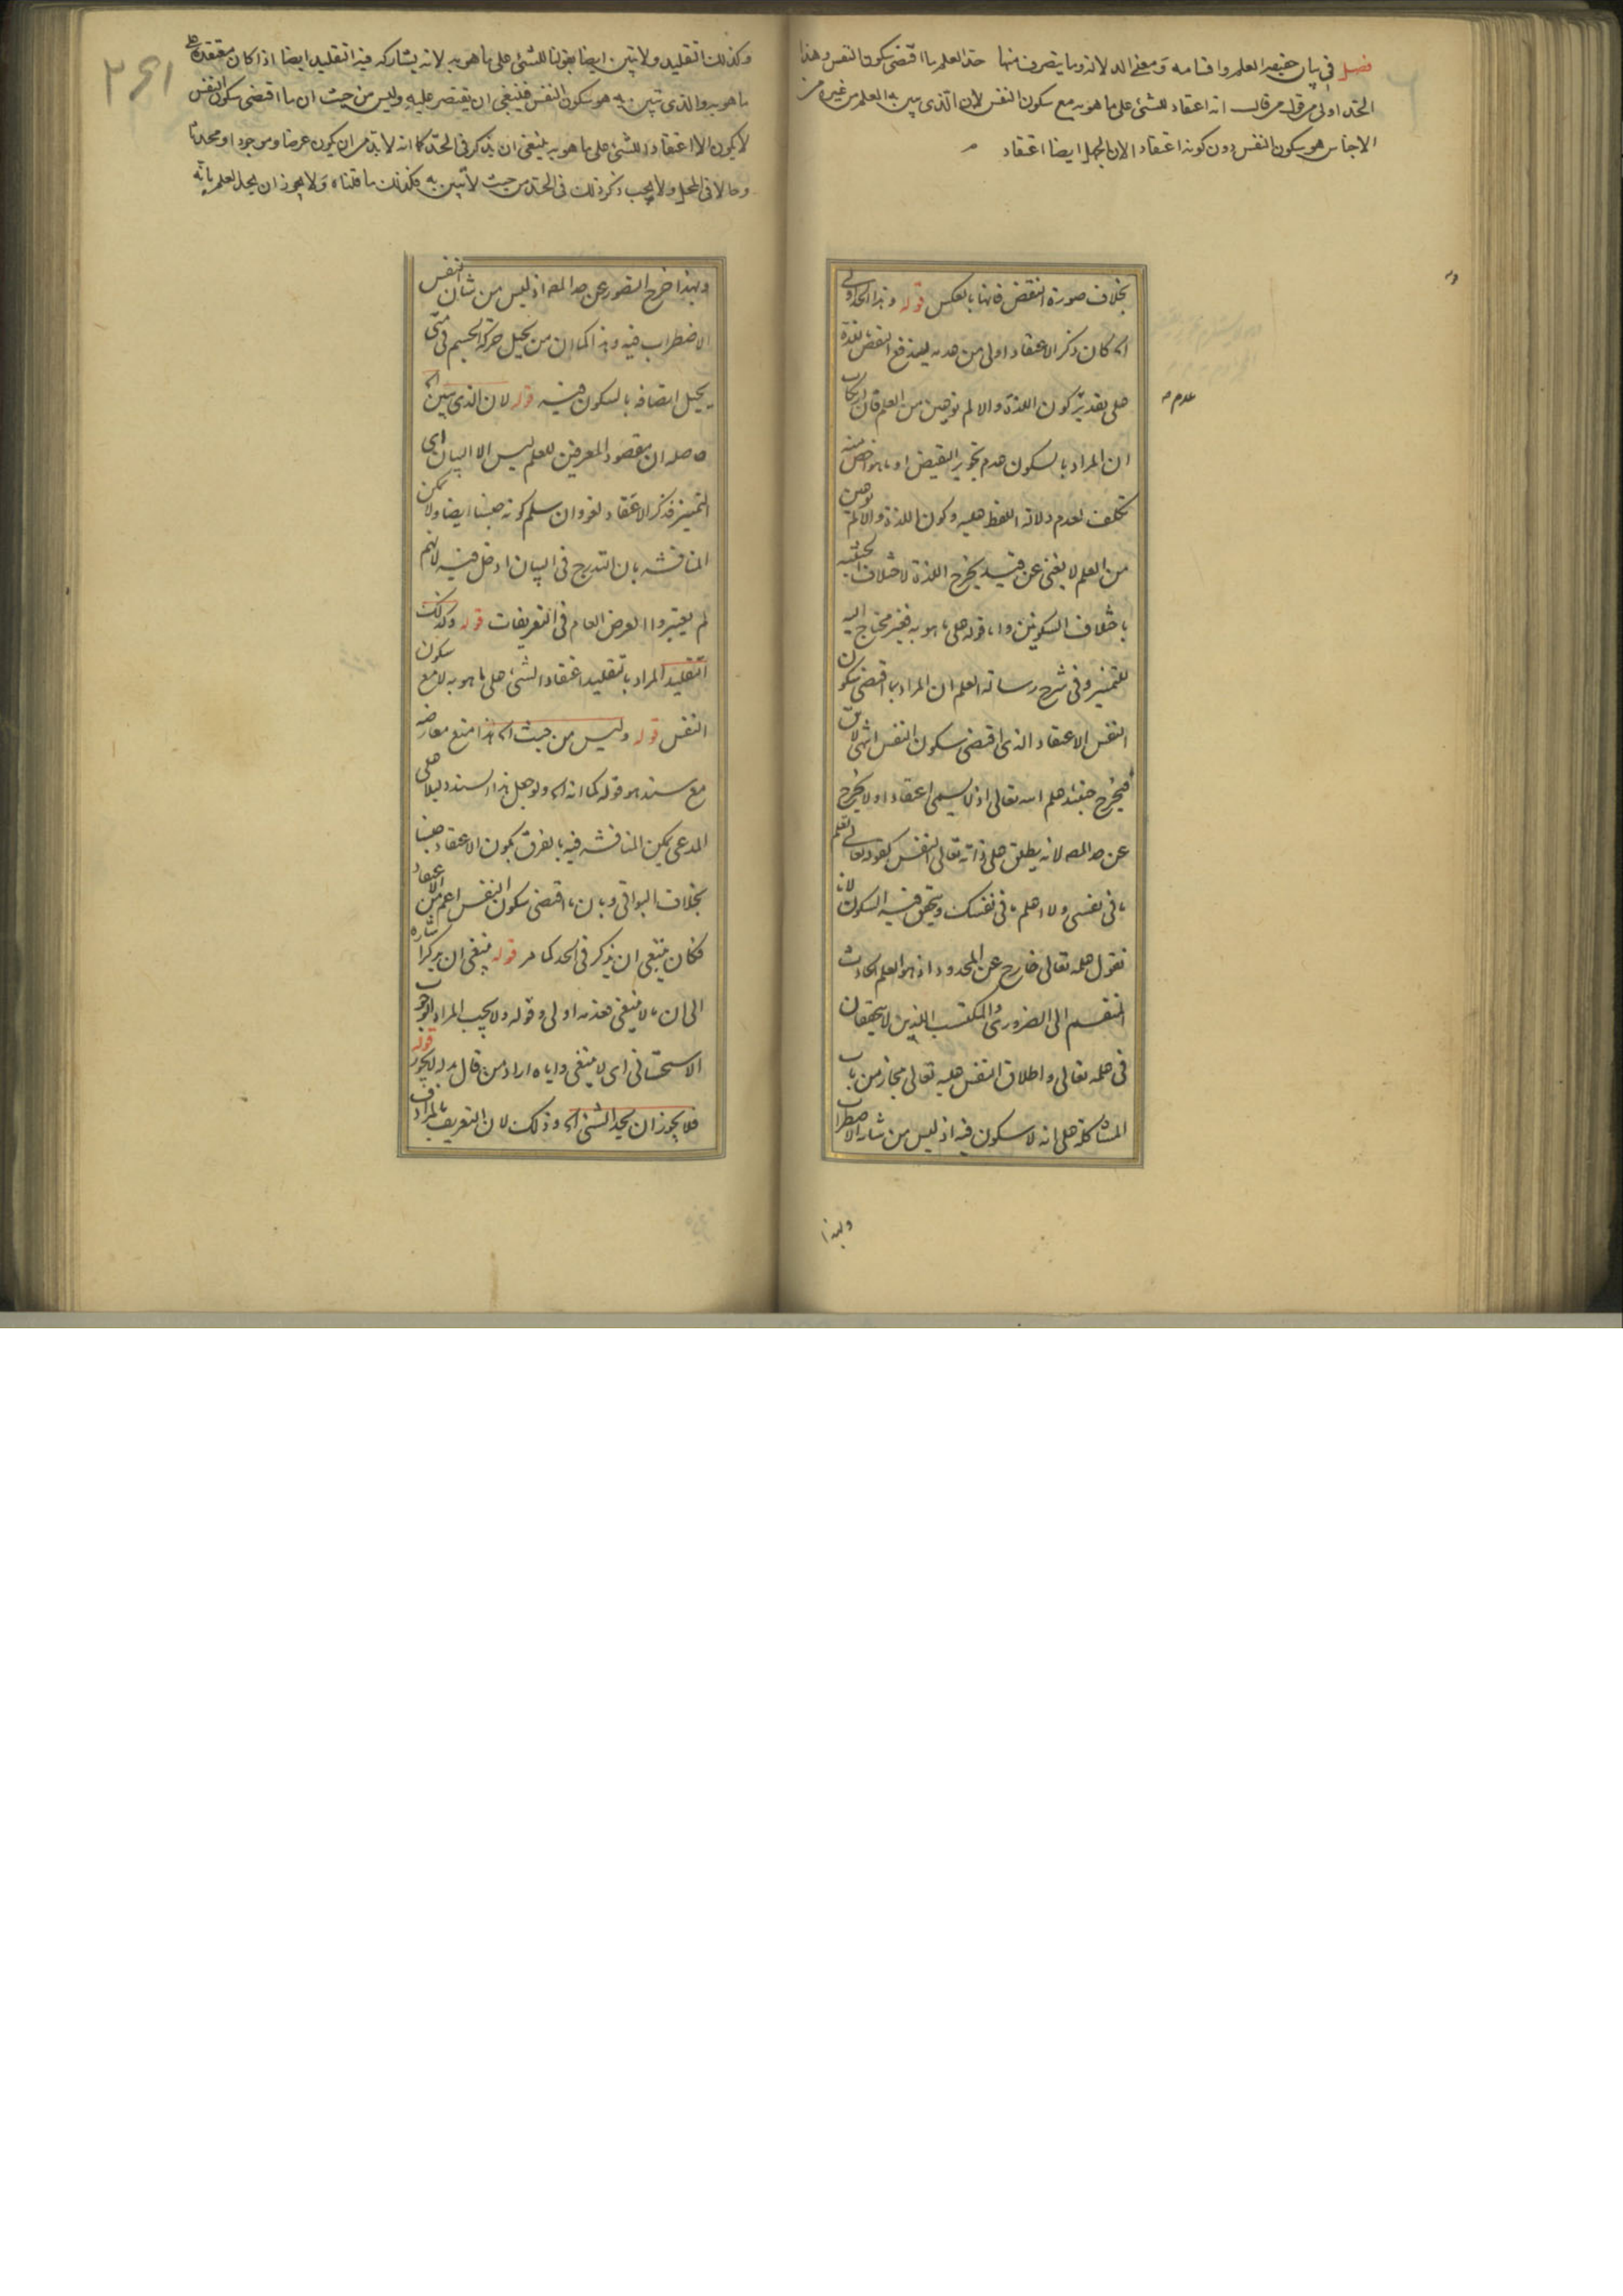 فصل في بيان حقيقة العلم واقسامه ومعنى الدلالة وما يتصرف منها حد العلم ما اقتضى سكون النفس وهذا
الحد اولى من قول من قال انه اعتقاد للشئ على ما هو به مع سكون النفس لان الذى يبين به العلم من غيره من
الاجناس هو سكون النفس دون كونه اعتقادا لان الجهل ايضا اعتقاد
بخلاف صورة النقض فانها بالعكس قوله وهذا الحد اولى
اه كان ذكر الاعتقاد اولى من عدمه ليندفع النقض بلذة
على تقدير كون اللذة والالم نوعين من العلم فان ارتكاب
ان المراد بالسكون عدم تجويز النقيض او ما هو اخص منه
تكلف لعدم دلالة اللفظ عليه وكون اللذة والالم نوعين
من العلم لا يغنى عن قيد يخرج اللذة لاختلاف الحيثية
باختلاف السكونين واما قوله على ما هو به فغير محتاج اليه
للتميز وفى شرح رسالة العلم ان المراد بما اقتضى سكون
النفس الاعتقاد الذى اقتضى سكون النفس انتهى لا يق
فيخرج حينئذ علم الله تعالى اذ لا يسمى اعتقادا ولا يخرج
عن حد المص لانه يطلق على ذاته تعالى النفس كقوله تعالى تعلم
ما فى نفسى ولا اعلم ما فى نفسك ويتحقق فيه السكون لانا
نقول علمه تعالى خارج عن المحدود اذ هو العلم الحادث
المنقسم الى الضرورى والمكتسب اللذين لا يتحققان
فى علمه تعالى واطلاق النفس عليه تعالى مجاز من باب
المشاكلة على انه لا سكون فيه اذ ليس من شانه الاضطراب
عدم
ولهذا
٣٤١
وكذلك التقليد ولا يتبين ايضا بقولنا للشئ على ما هو به لانه يشاركه فيه التقليد ايضا اذا كان معتقده على
ما هو به والذى يتبين به هو سكون النفس فينبغى ان يقتصر عليه وليس من حيث ان ما اقتضى سكون النفس
لا يكون الا اعتقادا للشئ على ما هو به ينبغى ان يذكر فى الحد كما انه لا بد من ان يكون عرضا وموجودا ومحدثا
وحالا فى المحل ولا يجب ذكر ذلك فى الحد من حيث لا يتبين به فكذلك ما قلناه ولا يجوز ان يحد العلم بانه
ولهذا خرج التصور عن حد المص اذ ليس من شان النفس
الاضطراب فيه وهذا كما ان من يحيل حركة الجسم فى شئ
يحيل اتصافه بالسكون فيه قوله لان الذى يبين اه
حاصله ان مقصود المعرفين للعلم ليس الا البيان اى
التميز فذكر الاعتقاد لغو وان سلم كونه جنسا ايضا ولا يمكن
المناقشة بان التدرج فى البيان ادخل فيه لانهم
لم يعتبروا العرض العام فى التعريفات قوله وكذلك
التقليد المراد بالتقليد اعتقاد الشئ على ما هو به لا مع سكون
النفس قوله وليس من حيث اه هذا منع معارضة
مع سند هو قوله كما انه اه ولو جعل هذا السند دليلا على
المدعى يمكن المناقشة فيه بالفرق بكون الاعتقاد جنسا
بخلاف البواقى وبان ما اقتضى سكون النفس اعم من الاعتقاد
فكان ينبغى ان يذكر فى الحد كما مر قوله ينبغى ان يذكر اشارة
الى ان ما لا ينبغى عدمه اولى وقوله ولا يجب المراد الوجوب
الاستحسانى اى لا ينبغى واياه اراد من قال بدله لا يجوز قوله
فلا يجوز ان يحد الشئ اه وذلك لان التعريف بالمرادف